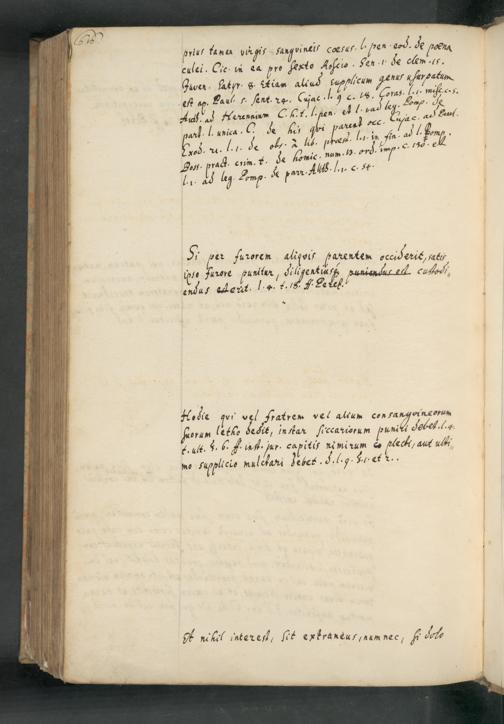 prius tamen virgis sangvineis cæsus. l. pen. eod. de poena
culei. Cic. in ea pro Sexto Roscio. Sen. 1. de clem. 15.
Juven. Satyr. 8. Etiam aliud supplicum genus usurpatum
est ap. Paul. 5. sent. 24. Cujac. l. 9 c. 18. Coras. l. 1. misc. c. 5.
Auth. ad Herennium C. h. t. l. pen. et l. 1. ad leg. Pomp. de
parr. l. unica. C. de his qvi parent. occ. Cujac. ad Paul.
Exod. 21. l. 1. de obs. 2 lib. præst. l. 1. in fin. ad l. Pomp.
Boss. pract. crim. t. de homic. num. 13. ord. imp. c. 130. et
l. 1. ad leg. Pomp. de parr. Alth. l. 1. c. 54.
Si per furorem aliqvis parentem occiderit, satis
ipso furore punitur, diligentius puniendus est custodi,,
endus erit. l. 4. t. 18. ff.
Hodie qvi vel fratrem vel alium consangvineorum
suorum letho dedit, instar siccariorum puniri debet. l. 4.
t. ult. §. 6. ff. inst. jur. capitis nimirum eo plecti, aut ulti,,
mo supplicio mulctari debet. d. l. 9. §. 1. et 2..
Et nihil interest, sit extraneus, nam nec, si dolo